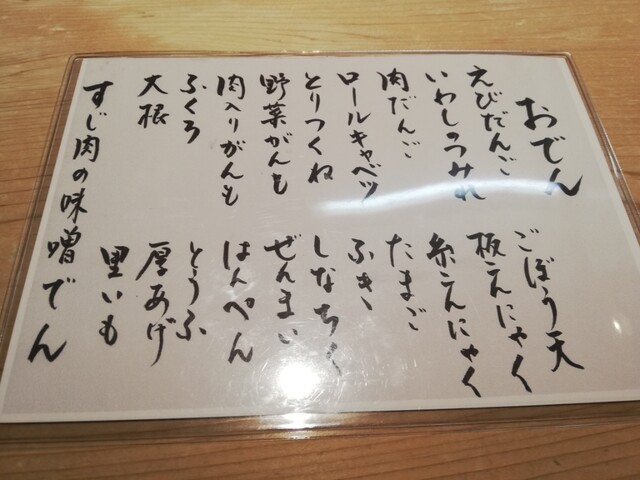 おでん
えびだんご
いわしのつみれ
肉だんご
ロールキャベツ
とりつくね
野菜がんも
肉入りがんも
ふくろ
大根
ごぼう天
板こんにゃく
糸こんにゃく
たまご
ふき
しなちく
ぜんまい
はんぺん
とうふ
厚あげ
里いも
すじ肉の味噌でん